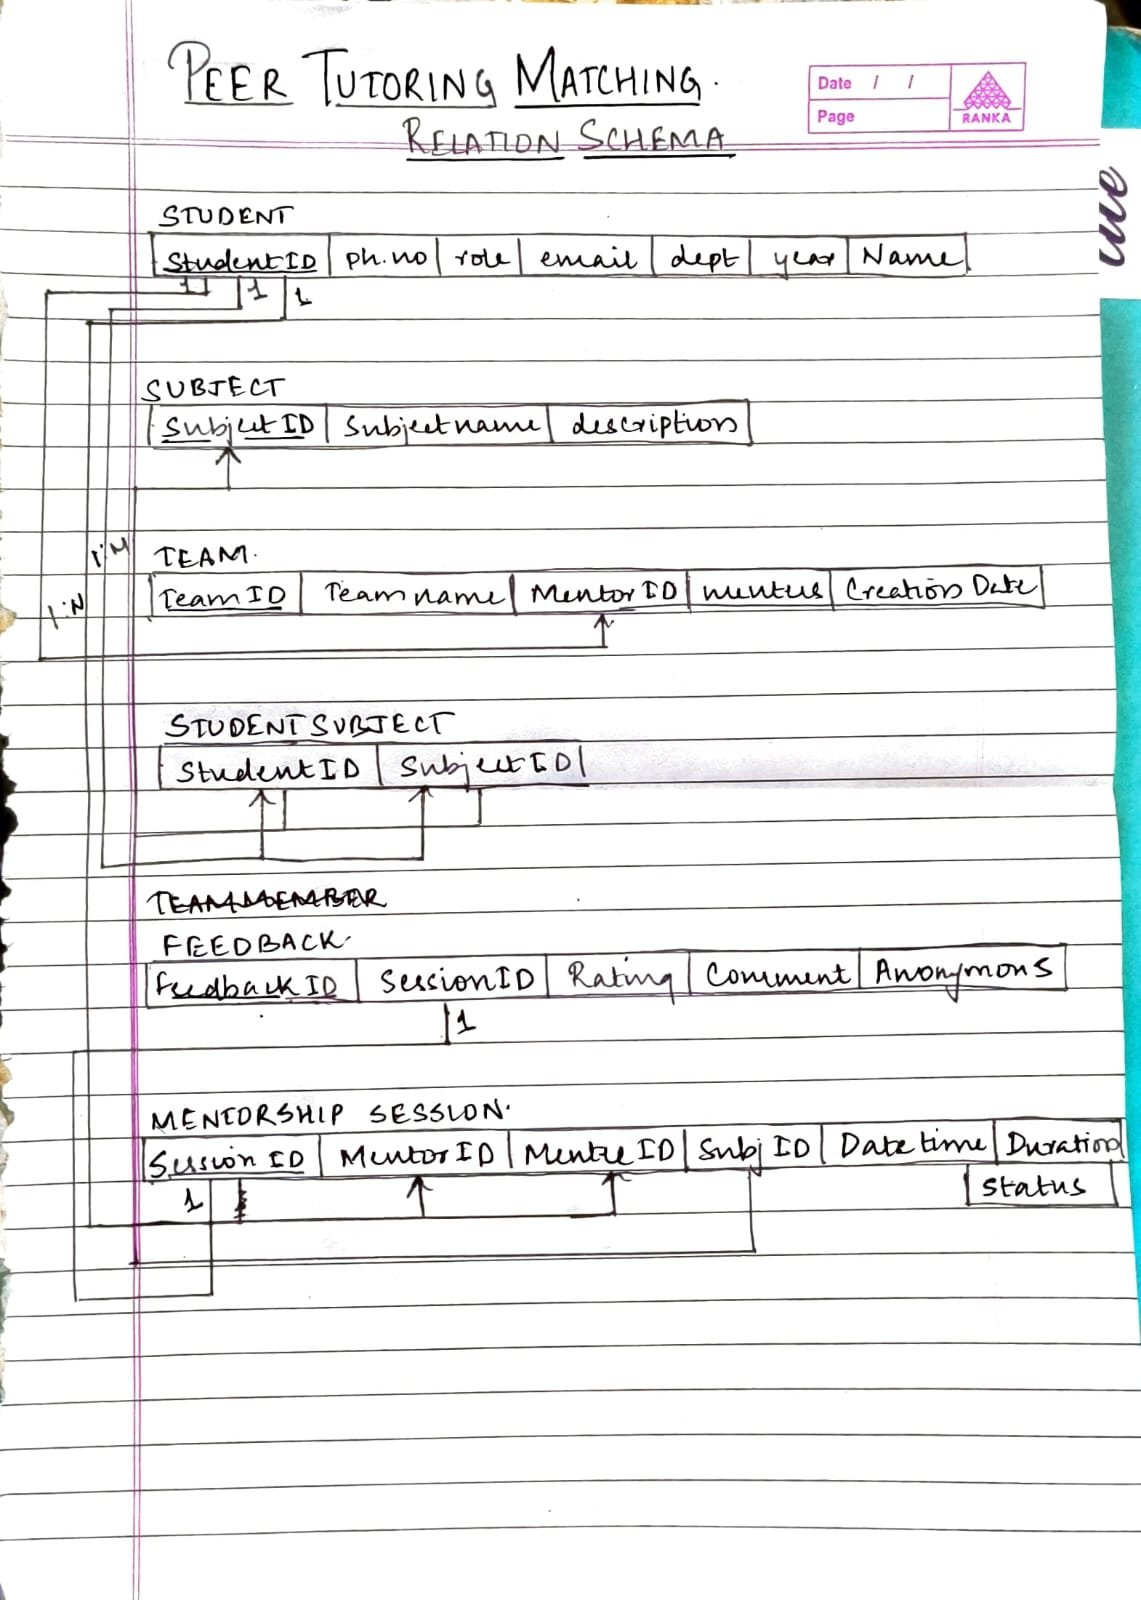 PEER TUTORING MATCHING.
Date / /
Page
RANKA
RELATION SCHEMA
me
STUDENT
StudentID ph.no role email dept year Name
1 1 1
SUBJECT
SubjectID Subjectname description
1:M
TEAM.
TeamID Teamname MentorID mentees Creation Date
1:N
STUDENTSUBJECT
StudentID SubjectID
TEAMMEMBER
FEEDBACK.
FeedbackID SessionID Rating Comment Anonymous
1
MENTORSHIP SESSION.
Session ID MentorID Mentee ID Subj ID Datetime Duration
1 status